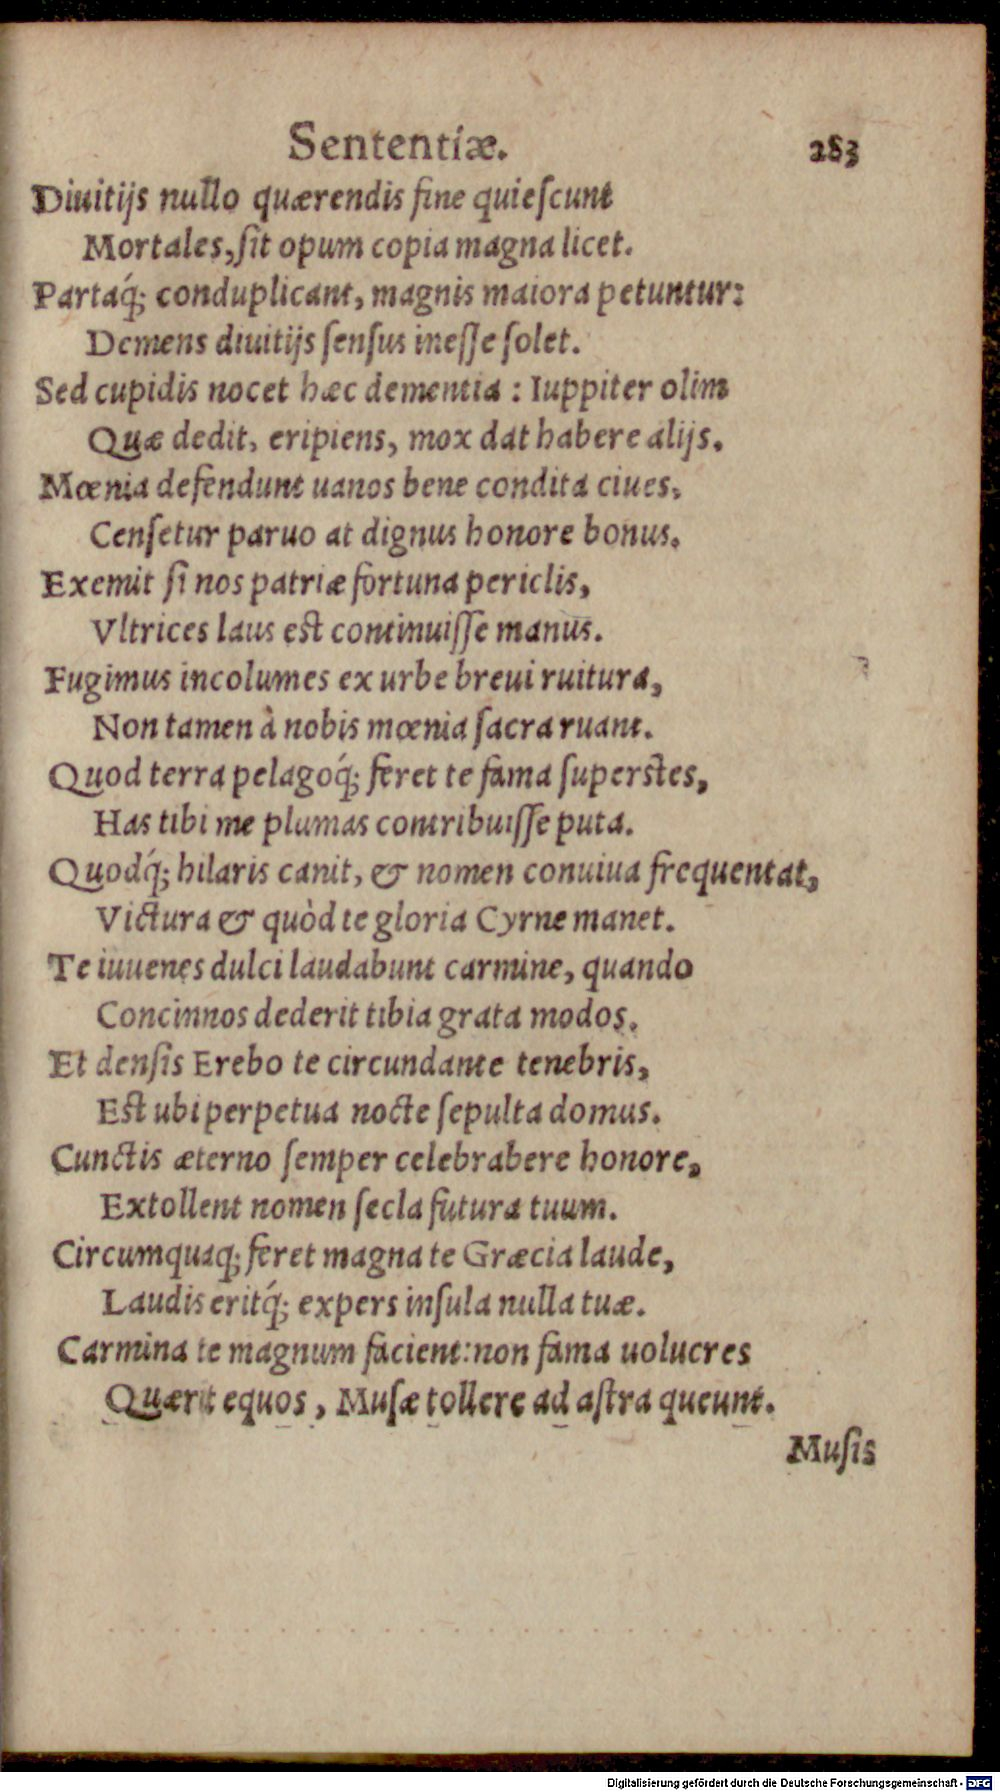 Sententiæ. 283
Diuitijs nullo quærendis fine quieſcunt
Mortales, ſit opum copia magna licet.
Partaq́; conduplicant, magnis maiora petuntur:
Demens diuitijs ſenſus ineſſe ſolet.
Sed cupidis nocet hæc dementia : Iuppiter olim
Quæ dedit, eripiens, mox dat habere alijs.
Mœnia defendunt uanos bene condita ciues,
Cenſetur paruo at dignus honore bonus.
Exemit ſi nos patriæ fortuna periclis,
Vltrices laus est continuiſſe manus.
Fugimus incolumes ex urbe breui ruitura,
Non tamen à nobis mœnia ſacra ruant.
Quod terra pelagoq́; feret te fama superstes,
Has tibi me plumas contribuiſſe puta.
Quodq́; hilaris canit, & nomen conuiua frequentat,
Victura & quòd te gloria Cyrne manet.
Te iuuenes dulci laudabunt carmine, quando
Concinnos dederit tibia grata modos.
Et denſis Erebo te circundante tenebris,
Est ubi perpetua nocte ſepulta domus.
Cunctis æterno ſemper celebrabere honore,
Extollent nomen ſecla futura tuum.
Circumquaq; feret magna te Græcia laude,
Laudis eritq́; expers inſula nulla tuæ.
Carmina te magnum facient: non fama uolucres
Quærit equos, Muſæ tollere ad aſtra queunt.
Muſis
Digitalisierung gefördert durch die Deutsche Forschungsgemeinschaft - DFG